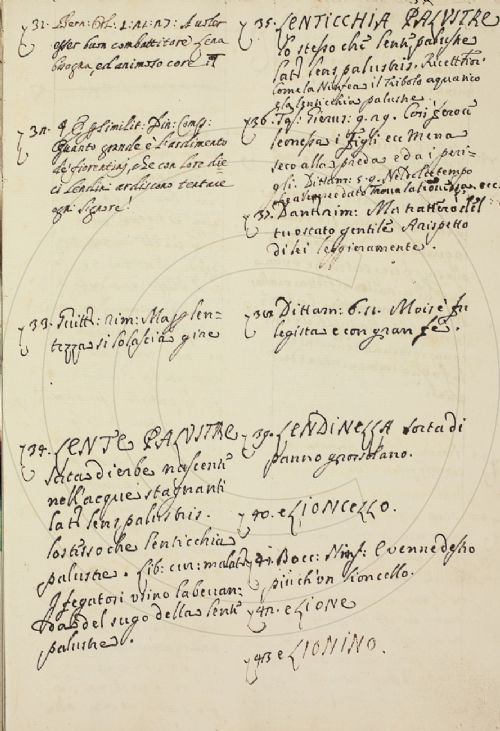 731. Bern: Orl: 2: 21: 27: A voler
esser buon combattitore Lena
bisogna, ed animoso core
732. Din: Comp:
Quanto grande è l'ardimento
de' fiorentini, che con loro die-
ci Lendini ardiscono tentare
ogni Signore!
733. Guitt: rim: Ma p len-
tezza si lo lascia gire
734. LENTE PALUSTRE
Sorta di erbe nascenti
nell'acque stagnanti
lat: lens palustris.
lo stesso che lenticchia
palustre. Lib: cur: malatt:
I fegatosi usino la bevan-
da del sugo della lente
palustre.
735. LENTICCHIA PALUSTRE
lo stesso che lente palustre
lat: lens palustris. Ricett: Fior:
Come la Ninfea il Tribolo aquatico
e la lenticchia palustre.
736. Così feroce
leonessa i figli ec: Mena
seco alla preda ed a i peri-
gli. Dittam: 5. 9. Nel suo tempo
737. Dant: rim: Ma trattero del
tuo stato gentile A rispetto
di lei leggieramente.
738. Dittam: 6. Moisè fu
legista e con gran fe.
739. LENDINELLA sorta di
panno grossolano.
740. e LIONCELLO.
741. Bocc: Ninf: E venne desto
più ch'un lioncello.
742. e LIONE
743 e LIONINO.